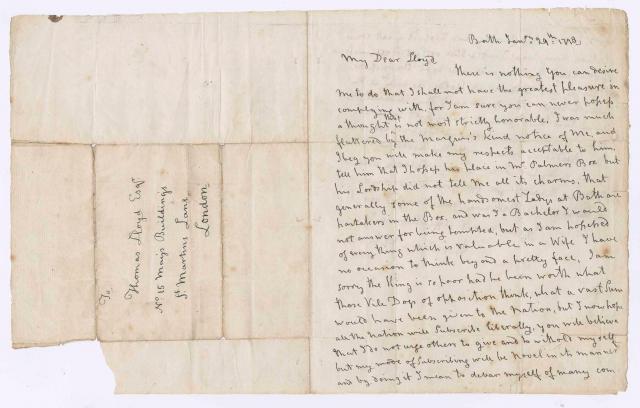 Bath Jany 29th 1798
My Dear Lloyd
There is nothing You can desire
me to do that I shall not have the greatest pleasure in
complying with, for I am sure you can never possess
a thought that is not most strictly honorable, I was much
flattered by the Marquis's kind notice of Me, and
I beg you will make my respects acceptable to him,
tell him that I possess his place in Mr Palmers Box but
his Lordship did not tell me all its charms, that
generally some of the handsomest Ladys at Bath are
partakers in the Box, and was I a Bachelor I would
not answer for being tempted, but as I am possess'd
of everything which is valuable in a Wife I have
no occasion to think beyond a pretty face, I am
sorry the King is so poor had he been worth what
those Vile Dogs of opposition think, what a vast Sum
would have been given to the Nation, but I now hope
all the Nation will Subscribe liberally, you will believe
that I do not urge others to give and to withold myself
but my mode of Subscribing will be Novel in its manner
and by doing it I mean to debar myself of many com
To
Thomas Lloyd Esqr
No 15 Mays Buildings
St Martins Lane
London